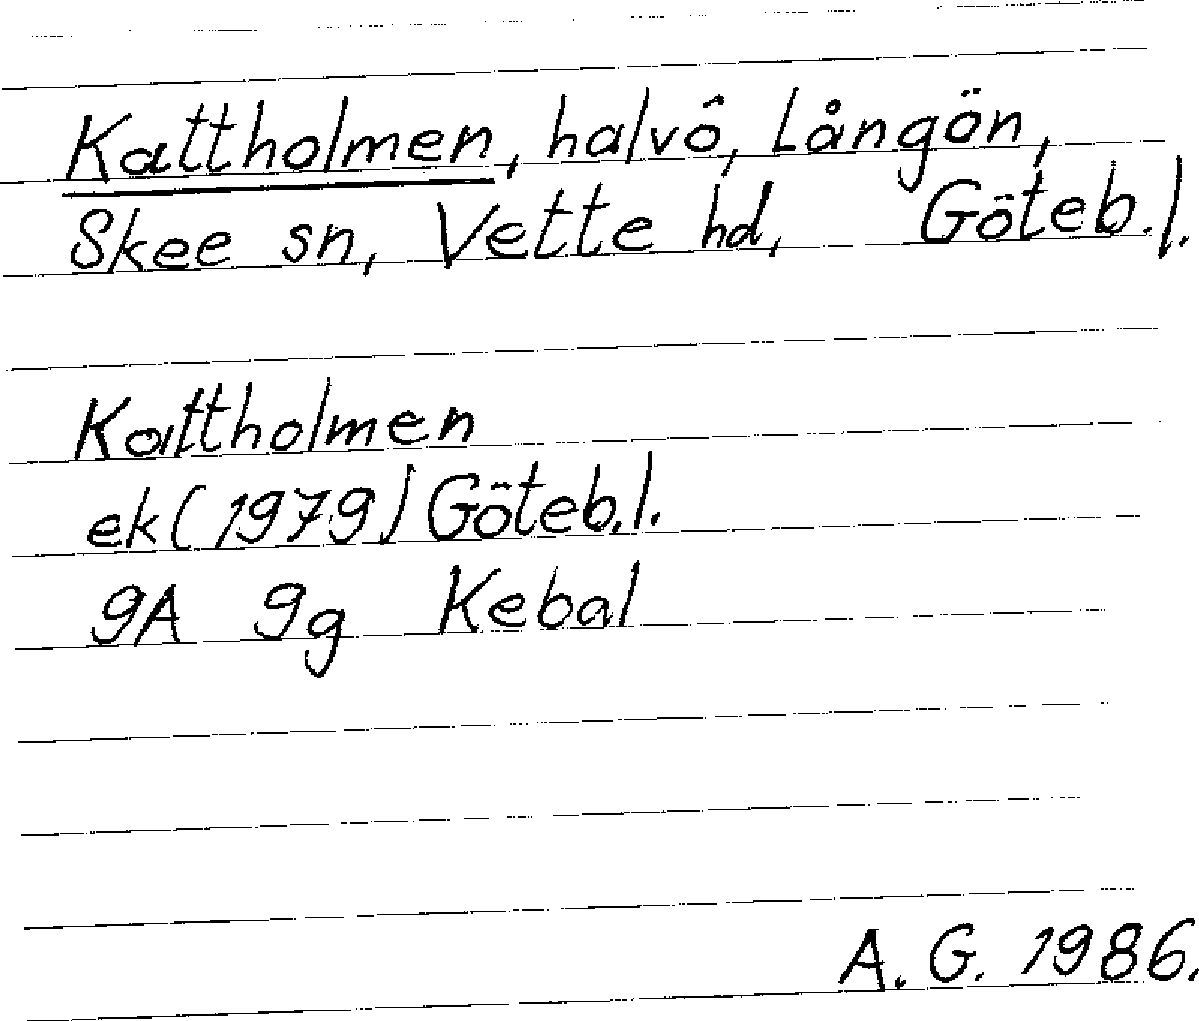 Kattholmen, halvö, Långön,
Skee sn, Vette hd, Göteb.l.
Kattholmen
ek(1979) Göteb.l.
9A 9g Kebal
A. G. 1986.